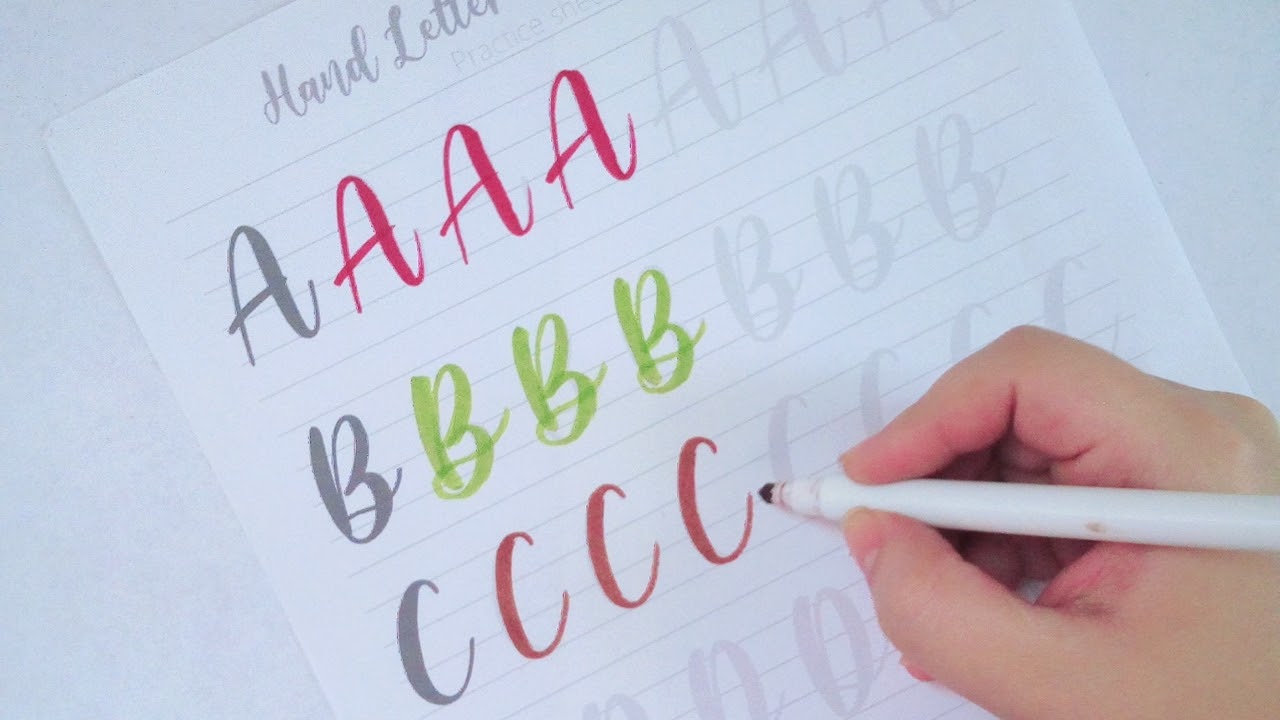 Hand Letter
Practice shee
A A A A A A A
B B B B B B B
C C C C C C C C
D D D